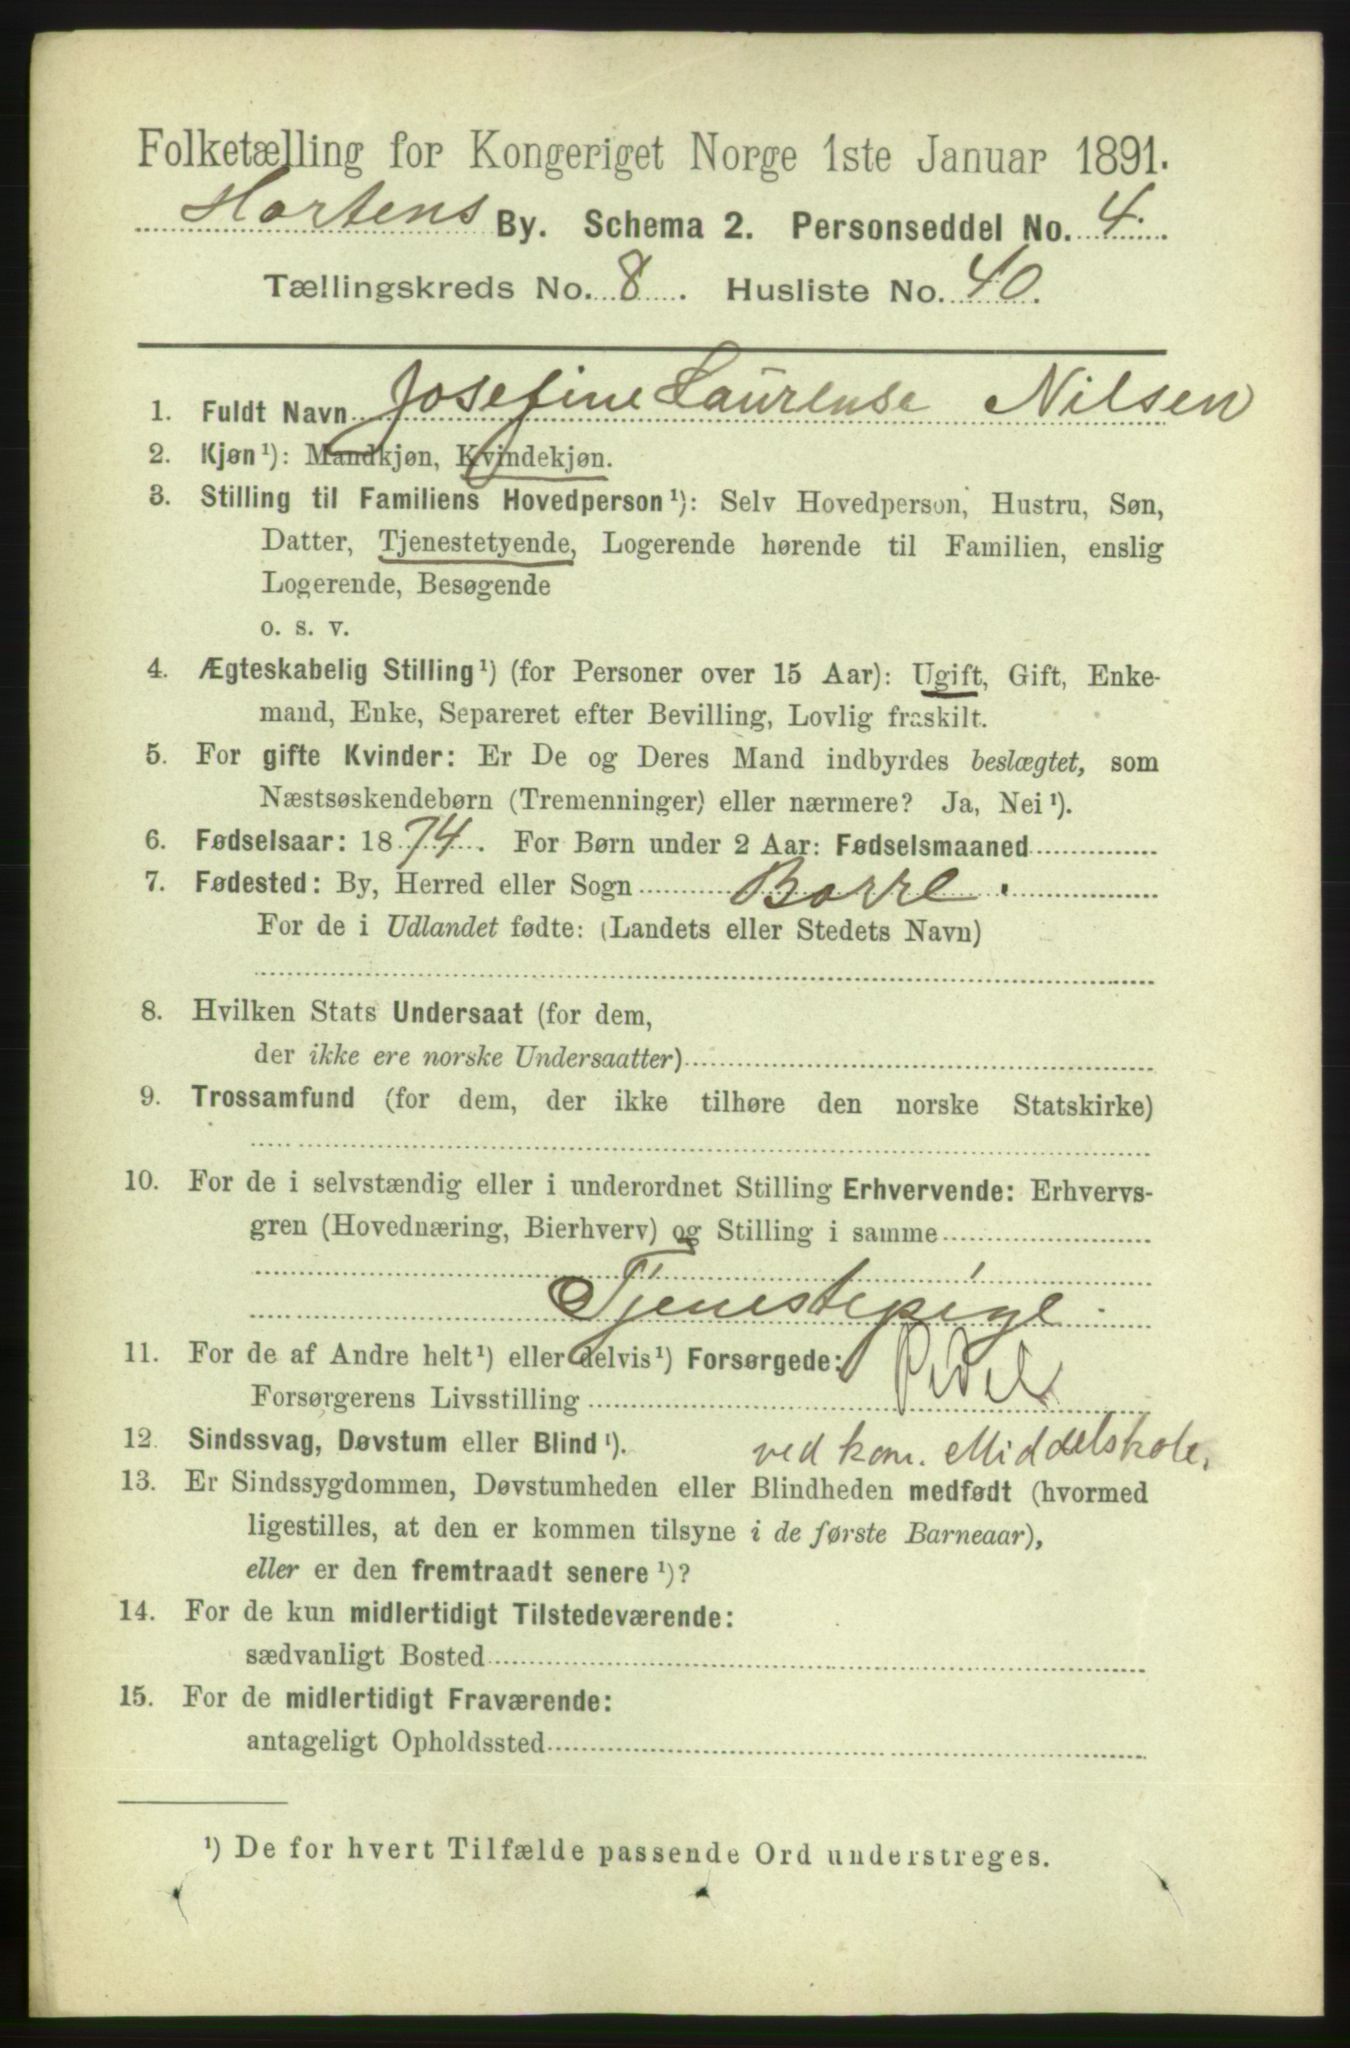 Folketælling for Kongeriget Norge 1ste Januar 1891.
Hortens By. Schema 2. Personseddel No. 4.
Tællingskreds No. 8. Husliste No. 40.
1. Fuldt Navn Josefine Laurense Nilsen
2. Kjøn¹): Mandkjøn, Kvindekjøn.
3. Stilling til Familiens Hovedperson¹): Selv Hovedperson, Hustru, Søn,
Datter, Tjenestetyende, Logerende hørende til Familien, enslig
Logerende, Besøgende
o. s. v.
4. Ægteskabelig Stilling¹) (for Personer over 15 Aar): Ugift, Gift, Enke-
mand, Enke, Separeret efter Bevilling, Lovlig fraskilt.
5. For gifte Kvinder: Er De og Deres Mand indbyrdes beslægtet, som
Næstsøskendebørn (Tremenninger) eller nærmere? Ja, Nei¹).
6. Fødselsaar: 1874. For Børn under 2 Aar: Fødselsmaaned
7. Fødested: By, Herred eller Sogn Borre.
For de i Udlandet fødte: (Landets eller Stedets Navn)
8. Hvilken Stats Undersaat (for dem,
der ikke ere norske Undersaatter)
9. Trossamfund (for dem, der ikke tilhøre den norske Statskirke)
10. For de i selvstændig eller i underordnet Stilling Erhvervende: Erhvervs-
gren (Hovednæring, Bierhverv) og Stilling i samme
Tjenestepige.
11. For de af Andre helt¹) eller delvis¹) Forsørgede: Pedel
Forsørgerens Livsstilling
12. Sindssvag, Døvstum eller Blind¹). ved kom. Middelskole.
13. Er Sindssygdommen, Døvstumheden eller Blindheden medfødt (hvormed
ligestilles, at den er kommen tilsyne i de første Barneaar),
eller er den fremtraadt senere¹)?
14. For de kun midlertidigt Tilstedeværende:
sædvanligt Bosted
15. For de midlertidigt Fraværende:
antageligt Opholdssted
¹) De for hvert Tilfælde passende Ord understreges.